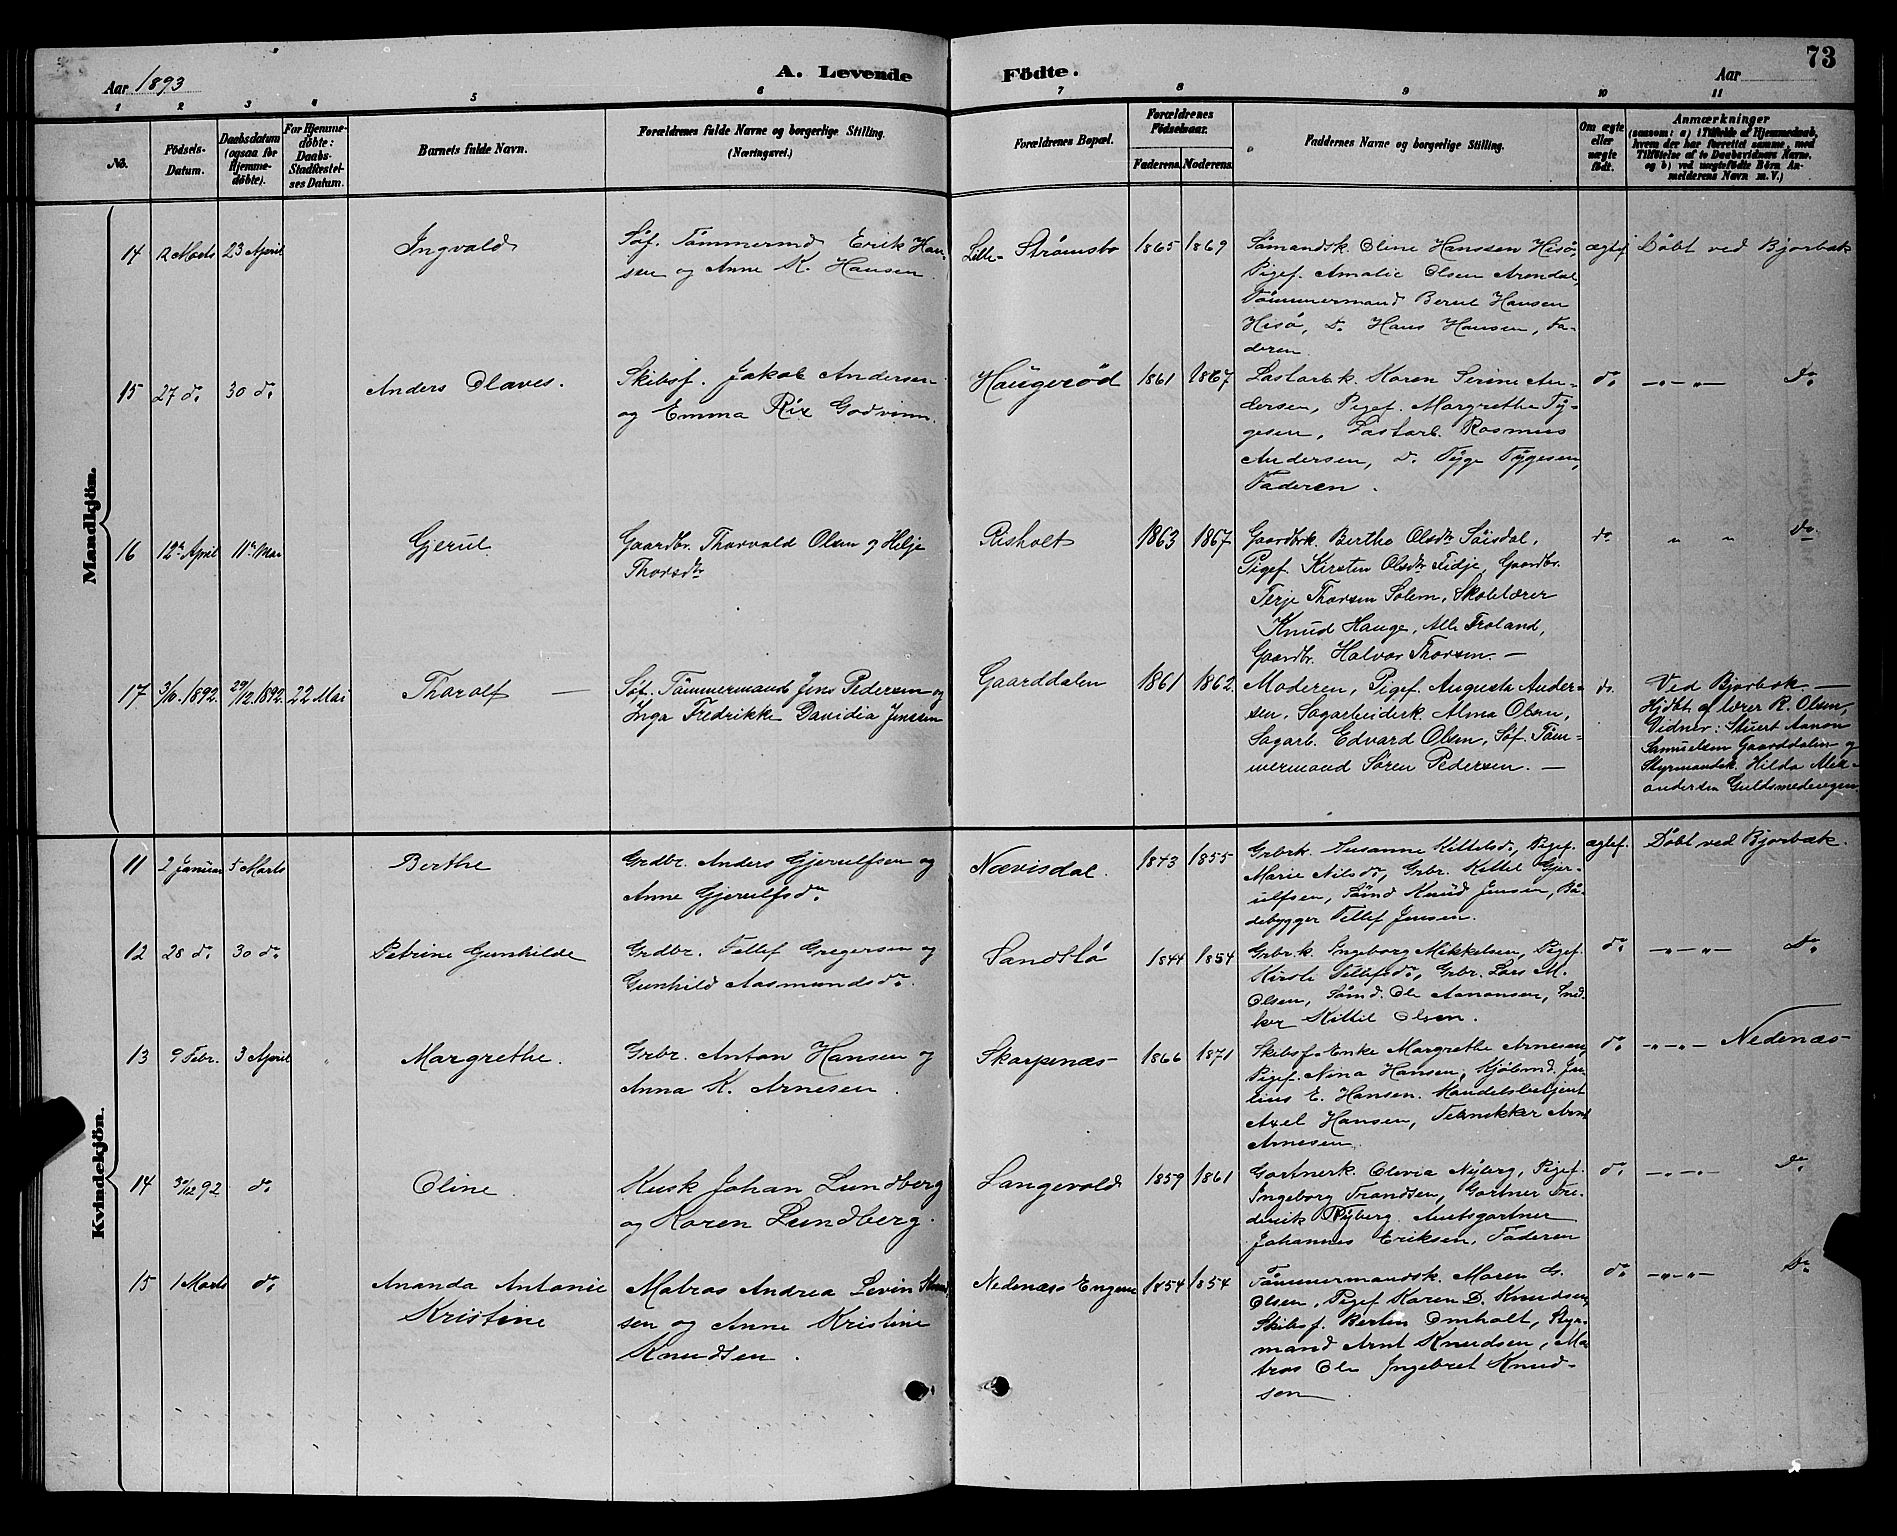 73
Aar 1893
A. Levende
Födte.
Aar
1 2 3 4 5 6 7 8 9 10 11
No.
Födsels-
Datum.
Daabsdatum
(ogsaa for
Hjemme-
döbte).
For Hjemme-
döbte:
Daabs-
Stadfæstel-
ses Datum.
Barnets fulde Navn.
Forældrenes fulde Navne og borgerlige Stilling.
(Næringsvei.)
Forældrenes Bopæl.
Forældrenes
Födselsaar.
Faderens.
Moderens.
Faddernes Navne og borgerlige Stilling.
Om ægte
eller
uægte
födt.
Anmærkninger
(saasom: a) i Tilfælde af Hjemmedaab,
hvem der har forrettet samme, med
Tilföielse af to Daabsvidners Navne,
og b) ved uægtefödte Börn An-
melderens Navn m. V.)
Mandkjön.
14 12 Marts 23 April
Ingvald
Søf. Tömmermd Erik Han-
sen og Anne K. Hansen.
Lille-Strömsbo 1865 1869
Sømandsk. Oline Hanssen Hisö,
Pigef. Amalie Olsen Arendal,
Tömmermand Bernt Hansen
Hisö, Do Hans Hansen, Fa-
deren.
ægtef. Döbt ved Bjorbæk
15 27 do 30 do
Anders Olaves.
Skibsf. Jakob Andersen
og Emma Rix Godvinn.
Haugeröd 1861 1867
Lastarbk. Karen Serine An-
dersen, Pigef. Margrethe Ty-
gesen, Lastarb. Rasmus
Andersen, do Tyge Tygesen,
Faderen.
do -"-"- Do
16 12te April 11te Mai
Gjerul
Gaardbr. Thorvald Olsen og Helje
Thorsdtr
Risholt 1863 1867
Gaardbrk. Berthe Olsdtr Söisdal,
Pigef. Kirsten Olsdtr Fidje, Gaardbr.
Terje Thorsen Solem, Skolelærer
Knud Hauge, Alle Froland,
Gaardbr. Halvor Thorsen. —
do " " Do
17 3/10.1892. 29/12.1892. 22 Mai
Tharolf —
Søf. Tömmermand Jens Pedersen og
Inga Fredrikke Davidia Jenssen
Gaarddalen 1861 1862.
Moderen, Pigef. Augusta Ander-
sen, Sagarbeiderk. Alma Olsen,
Sagarb. Edvard Olsen, Søf. Töm-
mermand Sören Pedersen. —
do.
Ved Bjorbæk. —
Hjdbt af lærer R. Olsen,
Vidner: Stuert Aanon
Samuelsen Gaarddalen og
Styrmandsk. Hilda Alex-
andersen Guldsmedengen
Kvindekjön.
11 2 Januar 5 Marts
Berthe
Grdbr. Anders Gjerulfsen og
Anne Gjerulfsdtr
Nævisdal. 1843 1855
Grbrk. Susanne Kittelsd, Pigef.
Marie Nilsdtr, Grbr. Kittel Gjer-
ulfsen, Sömd Knud Jensen, Bå-
debygger Tellef Jensen.
ægtef. Döbt ved Bjorbæk.
12 28 do 30 do
Petrine Gunhilde
Grdbr. Tellef Gregersen og
Gunhild Aasmundsdtr.
Sandslö 1844 1854
Grbrk. Ingeborg Mikkelsen, Pigef.
Kirsti Tellefsdtr, Grbr. Lars M.
Olsen, Sömd. Ole Aanonsen, Sned-
ker Kittil Olsen.
do -"-"- Do
13 9 Febr. 3 April
Margrethe.
Grbr. Anton Hansen og
Anna K. Arnesen.
Skarpenæs 1866 1871
Skibsf.Enke Margrethe Arnesen,
Pigef. Nina Hansen, Kjöbmd. Ju-
lius E. Hansen. Handelsbetjent
Axel Hansen, Tekniker Arnt
Arnesen.
do -"-"- Nedenæs
14 30/12 92 do
Oline.
Kusk Johan Lundberg
og Karen Lundberg.
Langevold 1859 1861
Gartnerk. Olevia Nyberg, Pigef.
Ingeborg Trandsen, Gartner Fre-
derik Nyberg. Amtsgartner
Johannes Eriksen, Faderen
do -"-"- Do
15 1 Marts do
Ananda Antonie
Kristine
Matros Andrea Levin
sen og Anne Kristine
Knudsen.
Nedenæs Engene 1854 1854
Tömmermandsk. Maren G.
Olsen, Pigef Karen D. Knudsen,
Skibsf. Bertin Omholt, Styr-
mand Arnt Knudsen, Ma-
tros Ole Ingebret Knud-
sen.
do -"-"- Do